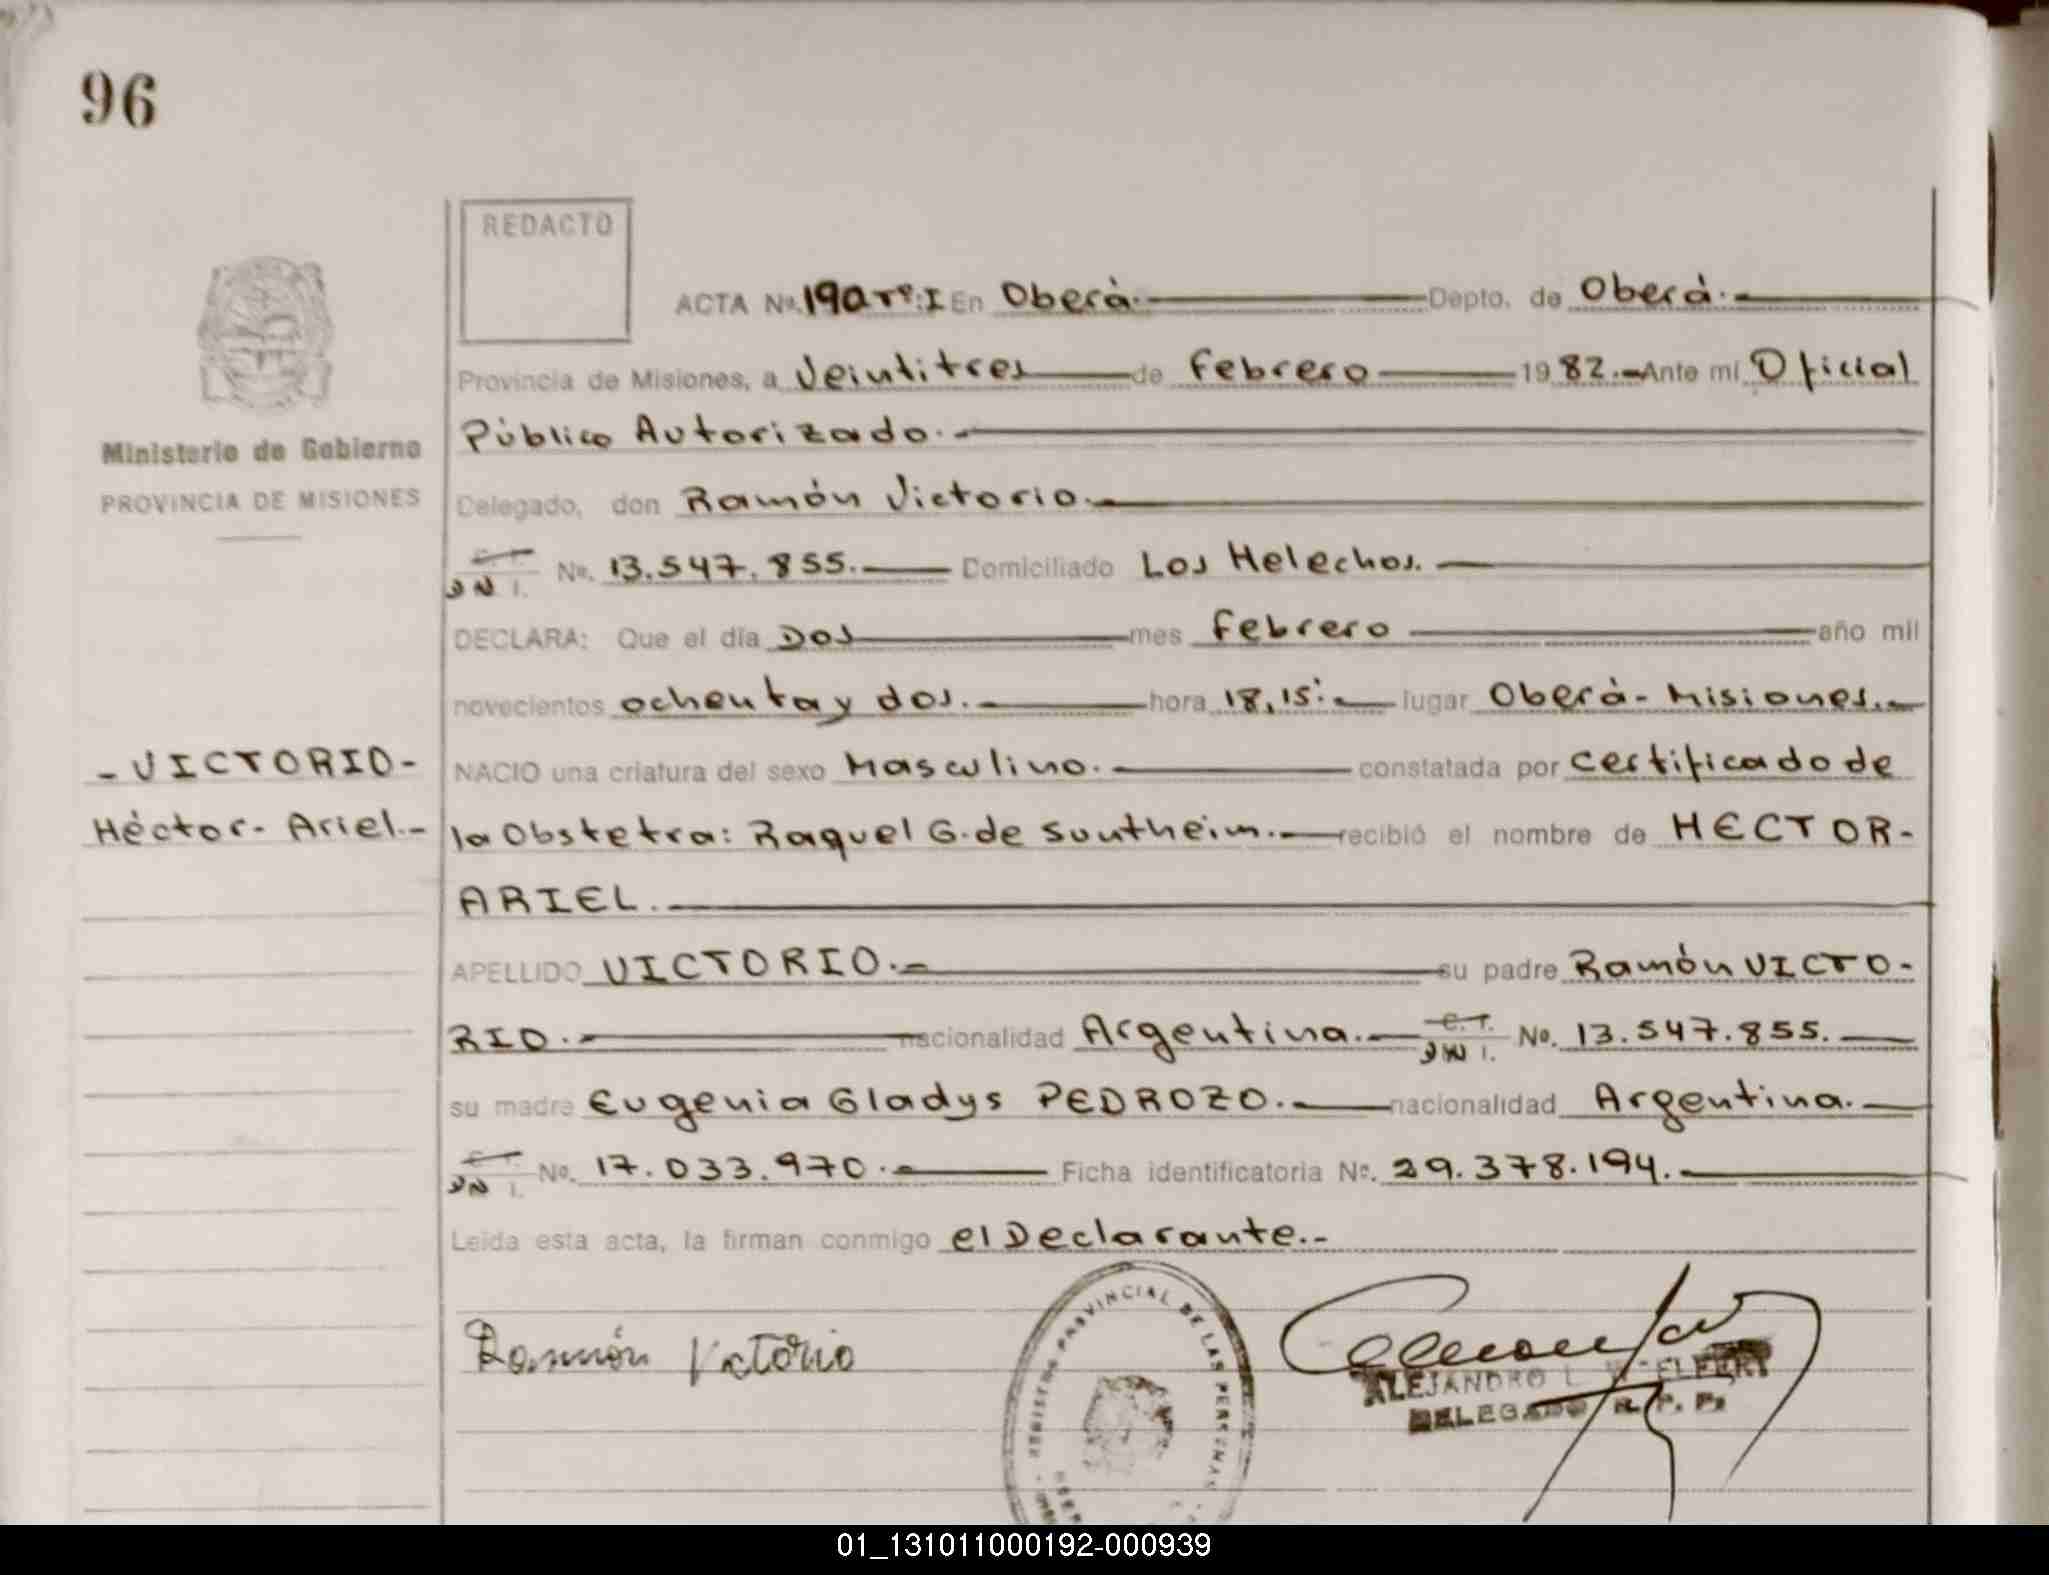 96
REDACTO
ACTA Nº. 190 Tº: I En Oberá.- Depto. de Oberá.-
Provincia de Misiones, a Veintitres de Febrero 1982.- Ante mí Oficial
Público Autorizado.-
Ministerio de Gobierno
PROVINCIA DE MISIONES
Delegado, don Ramón Victorio.-
C.I. Nº. 13.547.855.- Domiciliado Los Helechos.-
DNI.
DECLARA: Que el día Dos mes Febrero año mil
novecientos ochenta y dos.- hora 18,15'.- lugar Oberá- Misiones.-
NACIO una criatura del sexo Masculino.- constatada por certificado de
-VICTORIO-
Héctor- Ariel.-
la Obstetra: Raquel G. de Suntheim.- recibió el nombre de HECTOR-
ARIEL.-
APELLIDO VICTORIO.- su padre Ramón VICTO-
RIO.- nacionalidad Argentina.- C.I. Nº. 13.547.855.-
DNI.
su madre Eugenia Gladys PEDROZO.- nacionalidad Argentina.-
C.I. Nº. 17.033.970.- Ficha identificatoria Nº. 29.378.194.-
DNI.
Leída esta acta, la firman conmigo el Declarante.-
Rammón Victorio
REGISTRO PROVINCIAL DE LAS PERSONAS
ALEJANDRO L.
DELEGADO R. P. P.
01_131011000192-000939